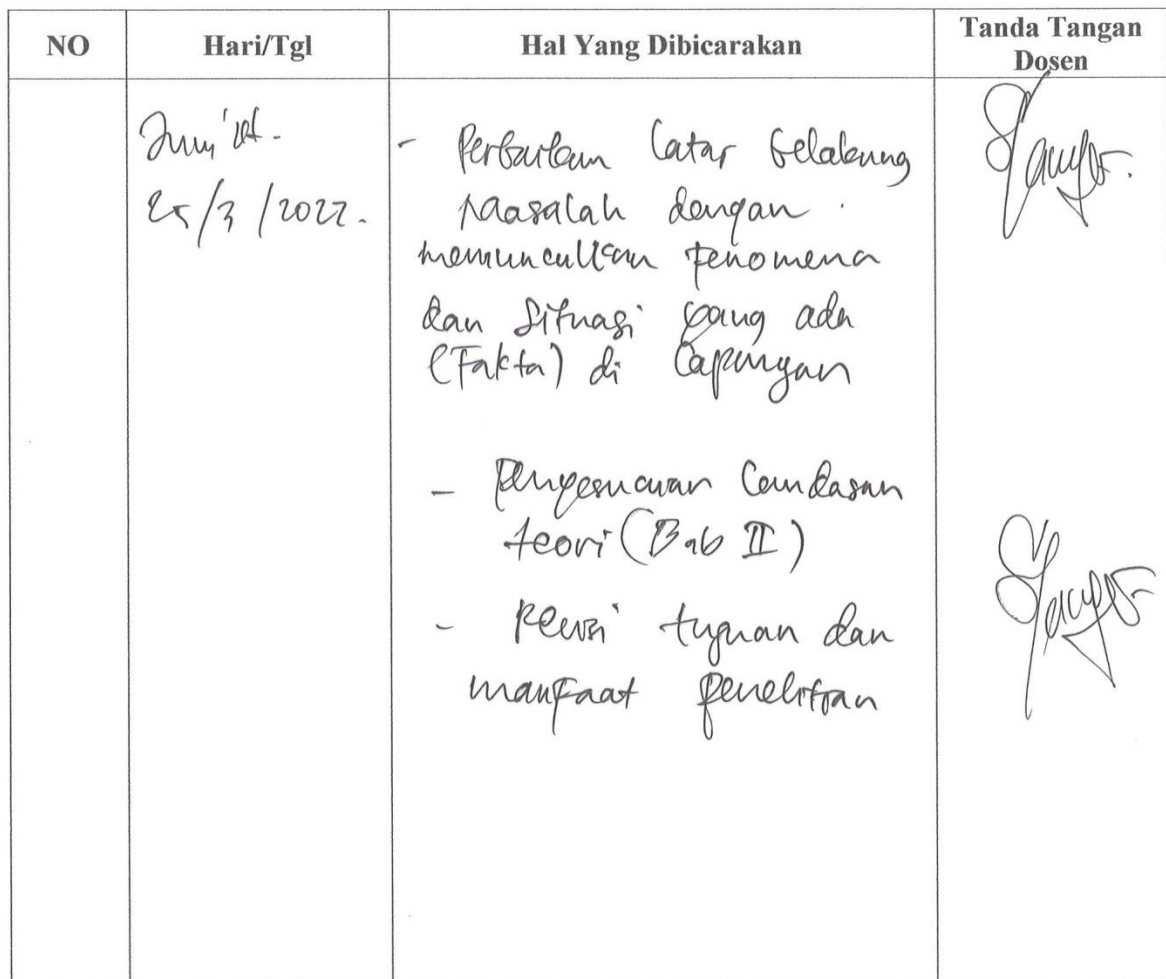 NO Hari/Tgl Hal Yang Dibicarakan Tanda Tangan Dosen
Jum'at.
25/3/2022.
- Perbaikan latar belakang
masalah dengan
memunculkan fenomena
dan situasi yang ada
(Fakta) di lapangan
- Penyesuaian landasan
teori (Bab II)
- Revisi tujuan dan
manfaat penelitian